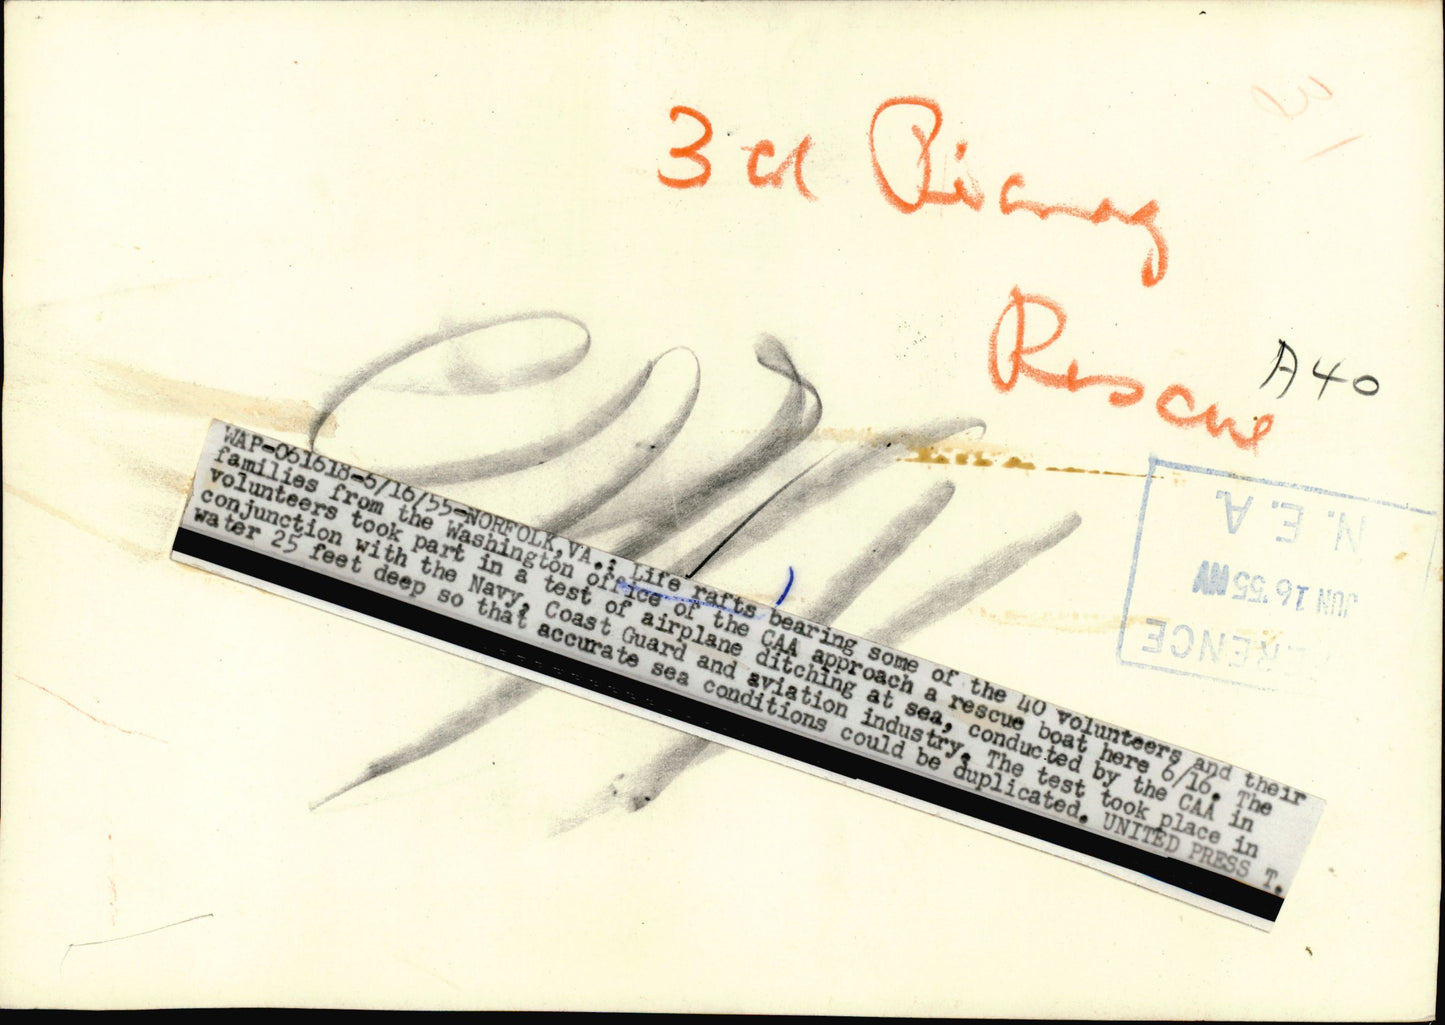 3 cl
Rescue
A40
WAP-061618-6/16/55-NORFOLK,VA.: Life rafts bearing some of the 40 volunteers and their
families from the Washington office of the CAA approach a rescue boat here 6/16. The
volunteers took part in a test of airplane ditching at sea, conducted by the CAA in
conjunction with the Navy, Coast Guard and aviation industry. The test took place in
water 25 feet deep so that accurate sea conditions could be duplicated. UNITED PRESS T.
RENCE
JUN 16 '55
N. E. A.